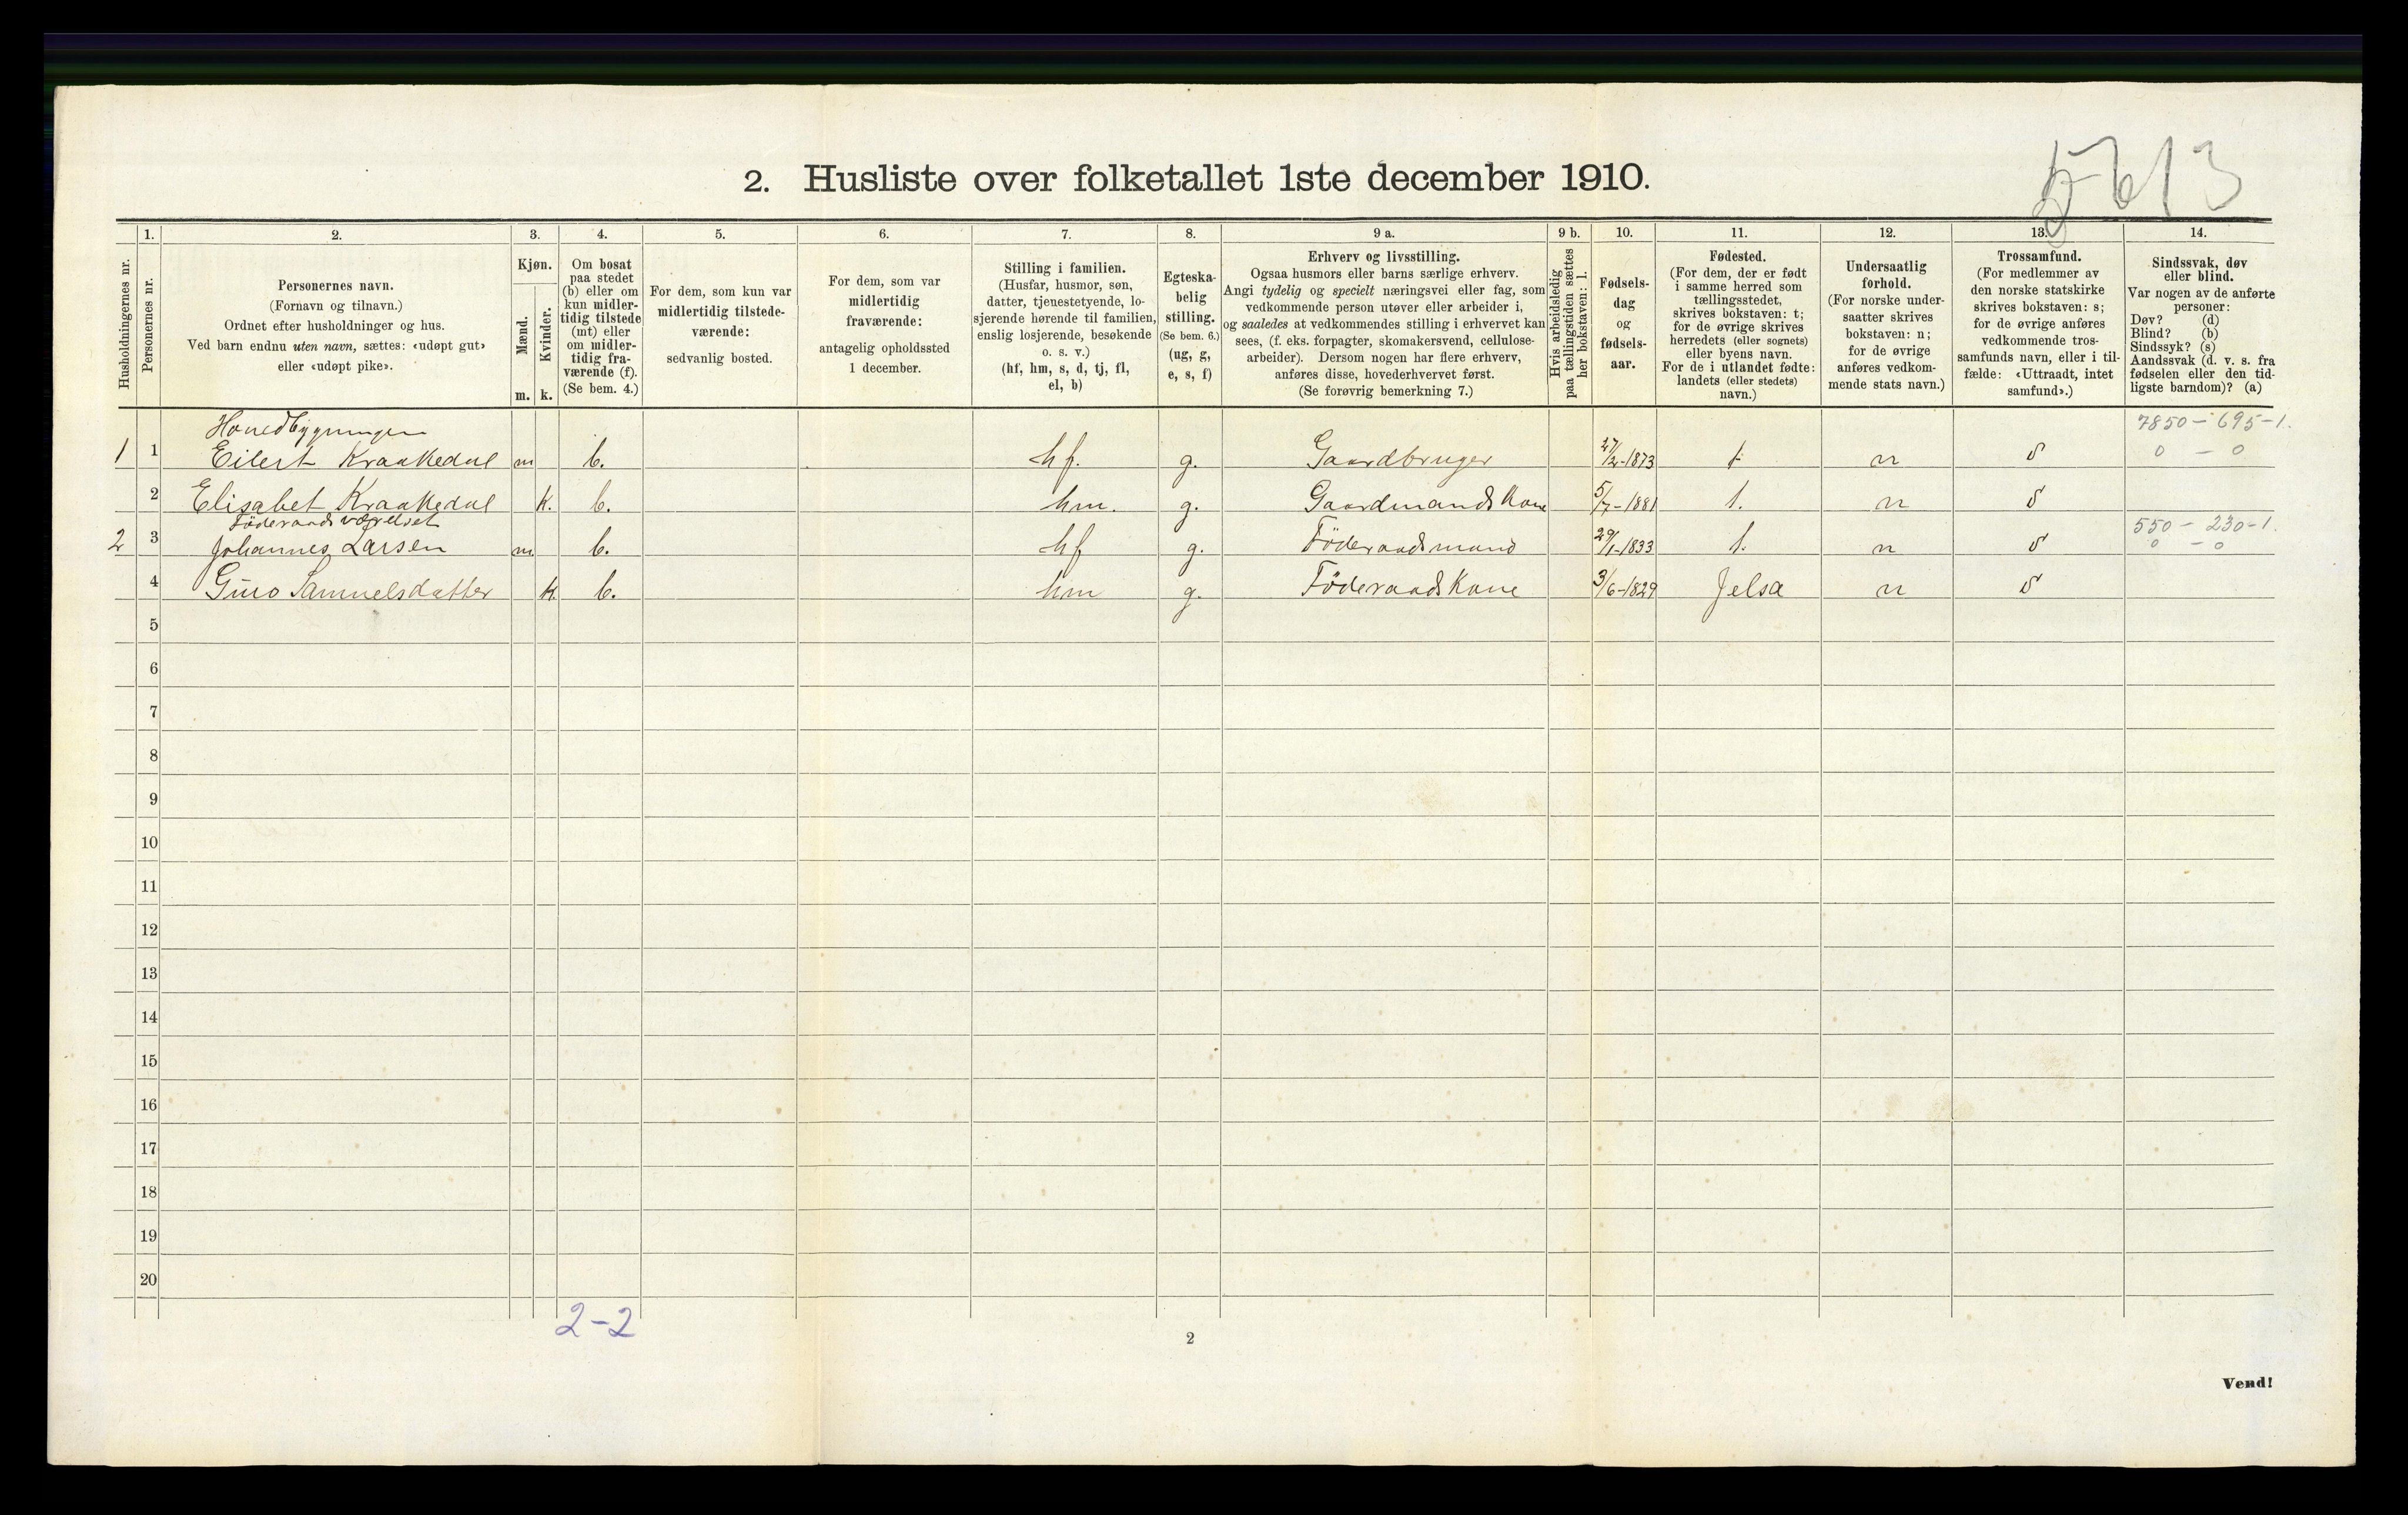 5613
2. Husliste over folketallet 1ste december 1910.
Husholdningernes nr.
1.
Personernes nr.
2.
Personernes navn.
(Fornavn og tilnavn.)
Ordnet efter husholdninger og hus.
Ved barn endnu uten navn, sættes: «udøpt gut»
eller «udøpt pike».
3.
Kjøn.
Mænd.
Kvinder.
m. k.
4.
Om bosat
paa stedet
(b) eller om
kun midler-
tidig tilstede
(mt) eller
om midler-
tidig fra-
værende (f).
(Se bem. 4.)
5.
For dem, som kun var
midlertidig tilstede-
værende:
sedvanlig bosted.
6.
For dem, som var
midlertidig
fraværende:
antagelig opholdssted
1 december.
7.
Stilling i familien.
(Husfar, husmor, søn,
datter, tjenestetyende, lo-
sjerende hørende til familien,
enslig losjerende, besøkende
o. s. v.)
(hf, hm, s, d, tj, fl,
el, b)
8.
Egteska-
belig
stilling.
(Se bem. 6.)
(ug, g,
e, s, f)
9 a.
Erhverv og livsstilling.
Ogsaa husmors eller barns særlige erhverv.
Angi tydelig og specielt næringsvei eller fag, som
vedkommende person utøver eller arbeider i,
og saaledes at vedkommendes stilling i erhvervet kan
sees, (f. eks. forpagter, skomakersvend, cellulose-
arbeider). Dersom nogen har flere erhverv,
anføres disse, hovederhvervet først.
(Se forøvrig bemerkning 7.)
9 b.
Hvis arbeidsledig
paa tællingstiden sættes
her bokstaven: l.
10.
Fødsels-
dag
og
fødsels-
aar.
11.
Fødested.
(For dem, der er født
i samme herred som
tællingsstedet,
skrives bokstaven: t;
for de øvrige skrives
herredets (eller sognets)
eller byens navn.
For de i utlandet fødte:
landets (eller stedets)
navn.)
12.
Undersaatlig
forhold.
(For norske under-
saatter skrives
bokstaven: n;
for de øvrige
anføres vedkom-
mende stats navn.)
13.
Trossamfund.
(For medlemmer av
den norske statskirke
skrives bokstaven: s;
for de øvrige anføres
vedkommende tros-
samfunds navn, eller i til-
fælde: «Uttraadt, intet
samfund».)
14.
Sindssvak, døv
eller blind.
Var nogen av de anførte
personer:
Døv? (d)
Blind? (b)
Sindssyk? (s)
Aandssvak (d. v. s. fra
fødselen eller den tid-
ligste barndom)? (a)
Hovedbygningen 7850 - 695-1.
1 1 Eilert Kraakedal m b. hf. g. Gaardbruger 27/2-1873 t n s 0 - 0
2 Elisabet Kraakedal k. b. hm. g. Gaardmands Kone 5/7-1881 t. n s
Föderaadsværelset 550 - 230-1.
2 3 Johannes Larsen m b. hf g. Föderaadsmand 29/1-1833 t. n s 0 - 0
4 Guro Samuelsdatter k. b. hm g. Föderaads Kone 3/6-1829 Jelsa n s
5
6
7
8
9
10
11
12
13
14
15
16
17
18
19
20
2-2
2
Vend!